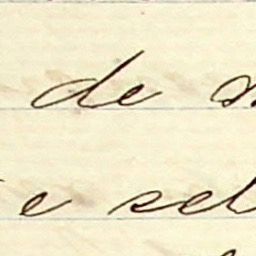 de
e sel